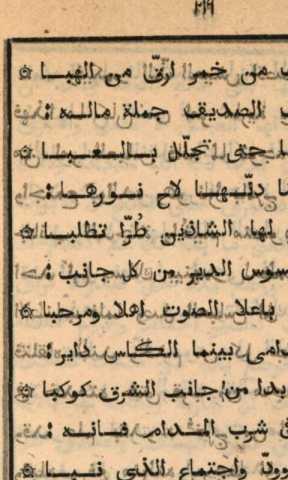 ٢١٩
من خمر ارقّ من الهبا ۞
الصديق جملة ماله :
حتى تجلّل بالعبا ۞
دنّها لاح نورها :
لها الشاذين طُرّا تطلبا ۞
سوس الدير من كل جانب :
باعلا الصوت اهلا ومرحبا ۞
بينما الكاس داير :
بدا من جانب الشرق كوكبا ۞
شرب المدام فانه :
واجتماع الذي